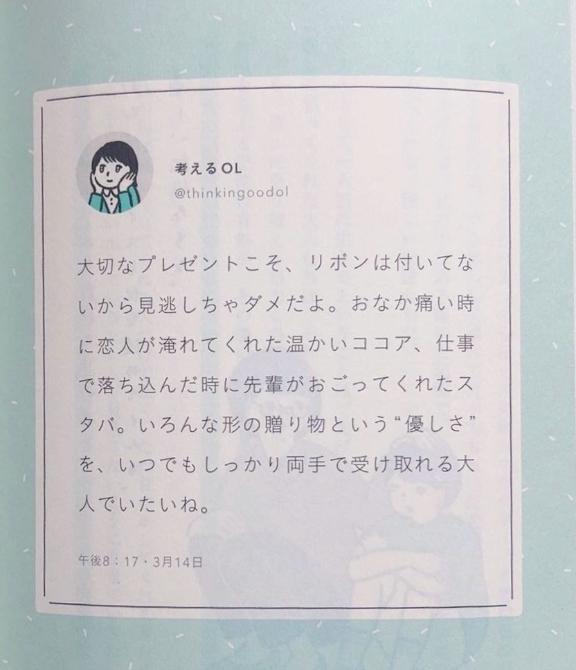 考えるOL
@thinkingoodol
大切なプレゼントこそ、リボンは付いてな
いから見逃しちゃダメだよ。おなか痛い時
に恋人が淹れてくれた温かいココア、仕事
で落ち込んだ時に先輩がおごってくれたス
タバ。いろんな形の贈り物という“優しさ”
を、いつでもしっかり両手で受け取れる大
人でいたいね。
午後8：17・3月14日